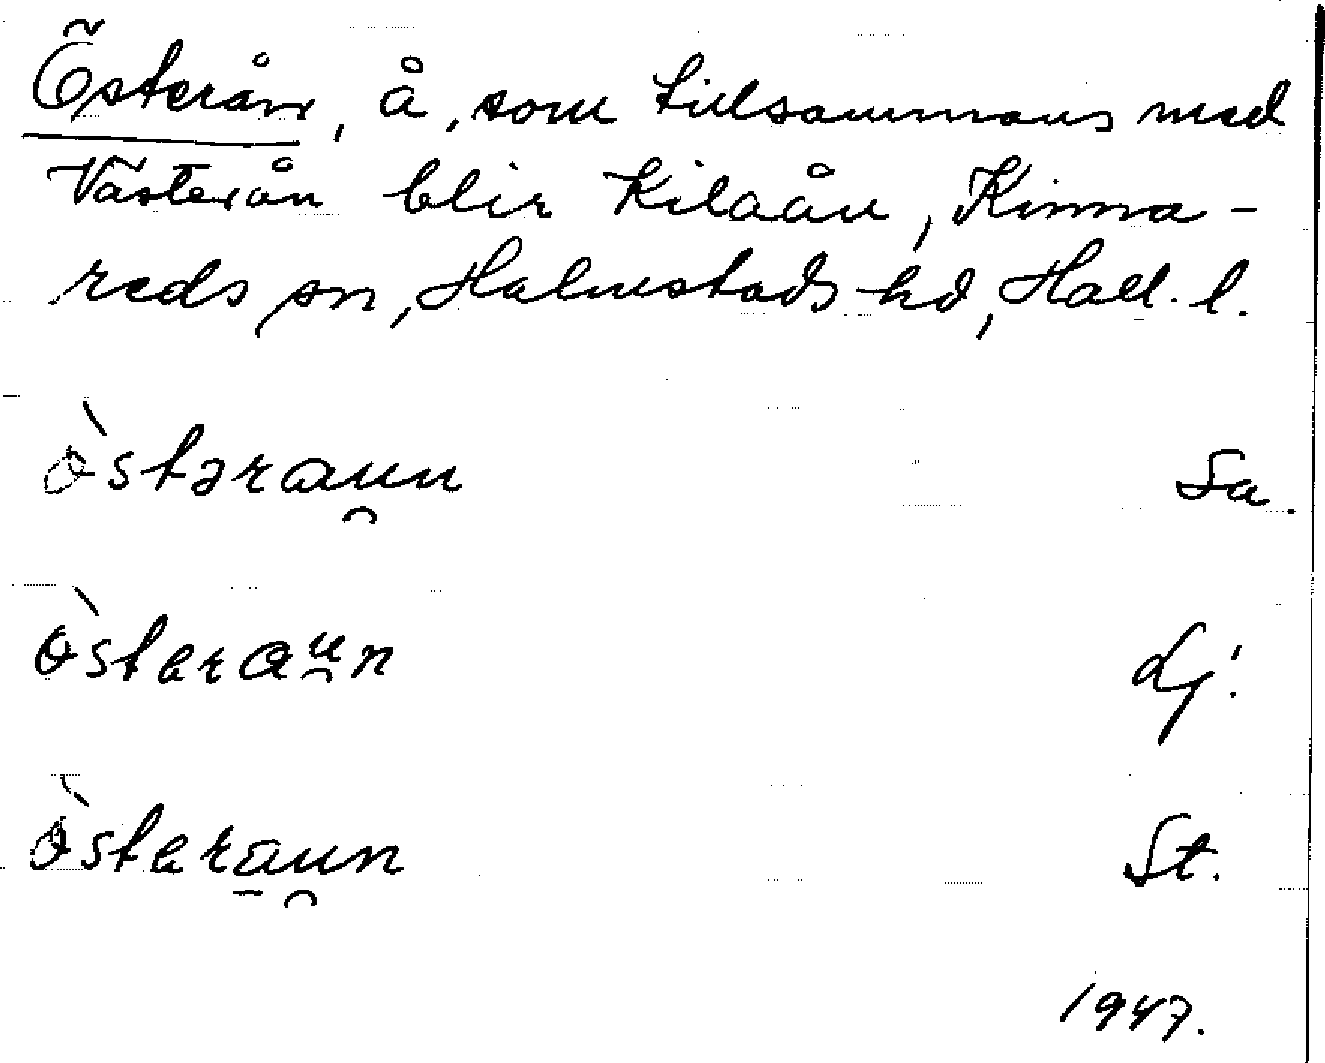 Österån, å, som tillsammans med
Västerån blir Kilaån, Kinna-
reds sn, Halmstads hd, Hall. l.
ò̀stərau̯n Sa.
ò̀starau̯n Lj.
ò̀stara̠u̯n St.
1947.